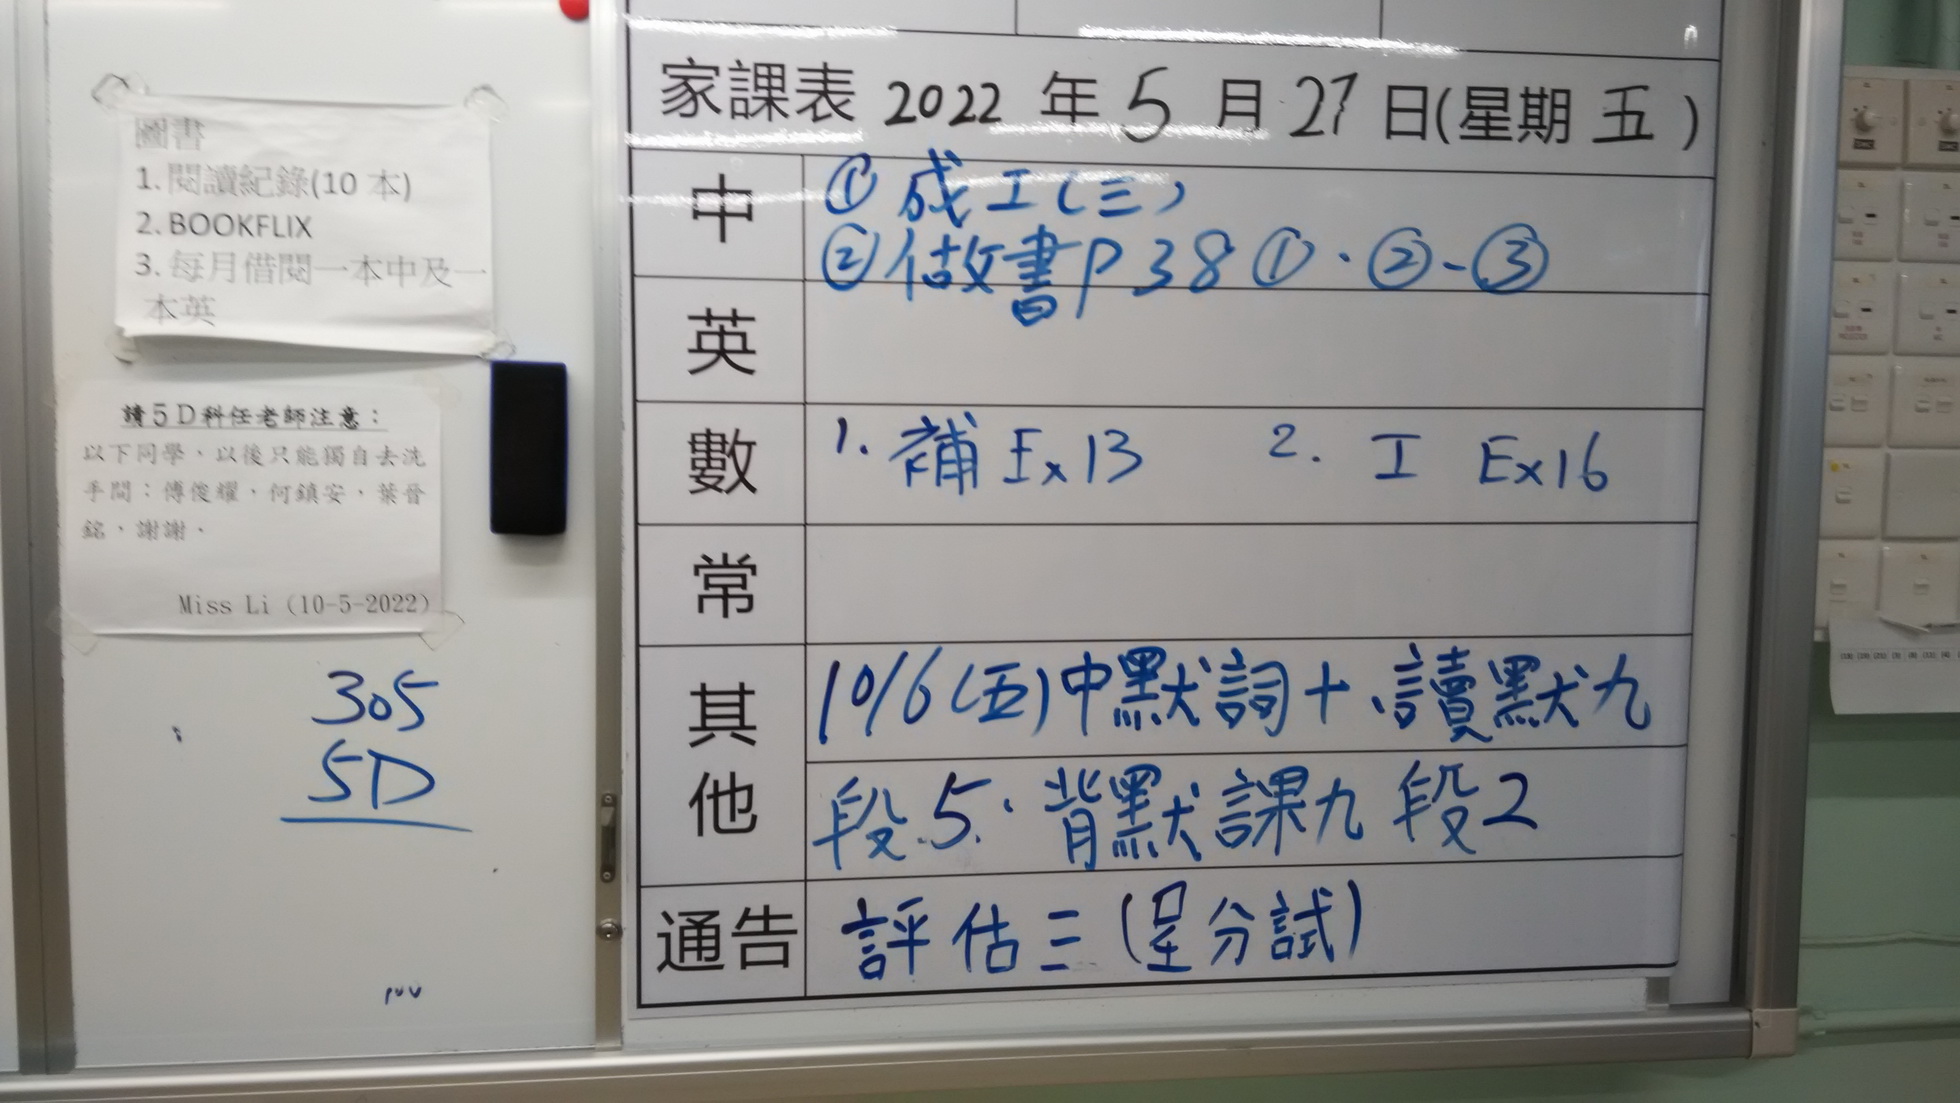 圖書
1. 閱讀紀錄(10 本)
2. BOOKFLIX
3. 每月借閱一本中及一
本英
請5D科任老師注意：
以下同學，以後只能獨自去洗
手間：傅俊耀，何鎮安，葉晉
銘，謝謝．
Miss Li (10-5-2022)
305
5D
家課表 2022 年 5 月 27 日(星期 五 )
中
① 成工(三)
② 做書P38 ①、②-③
英
數
1. 補 Ex13 2. 工 Ex16
常
其他
10/6(五)中默詞十、讀默九
段5、背默課九 段2
通告
評估三(呈分試)